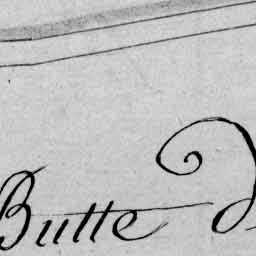 Butte d